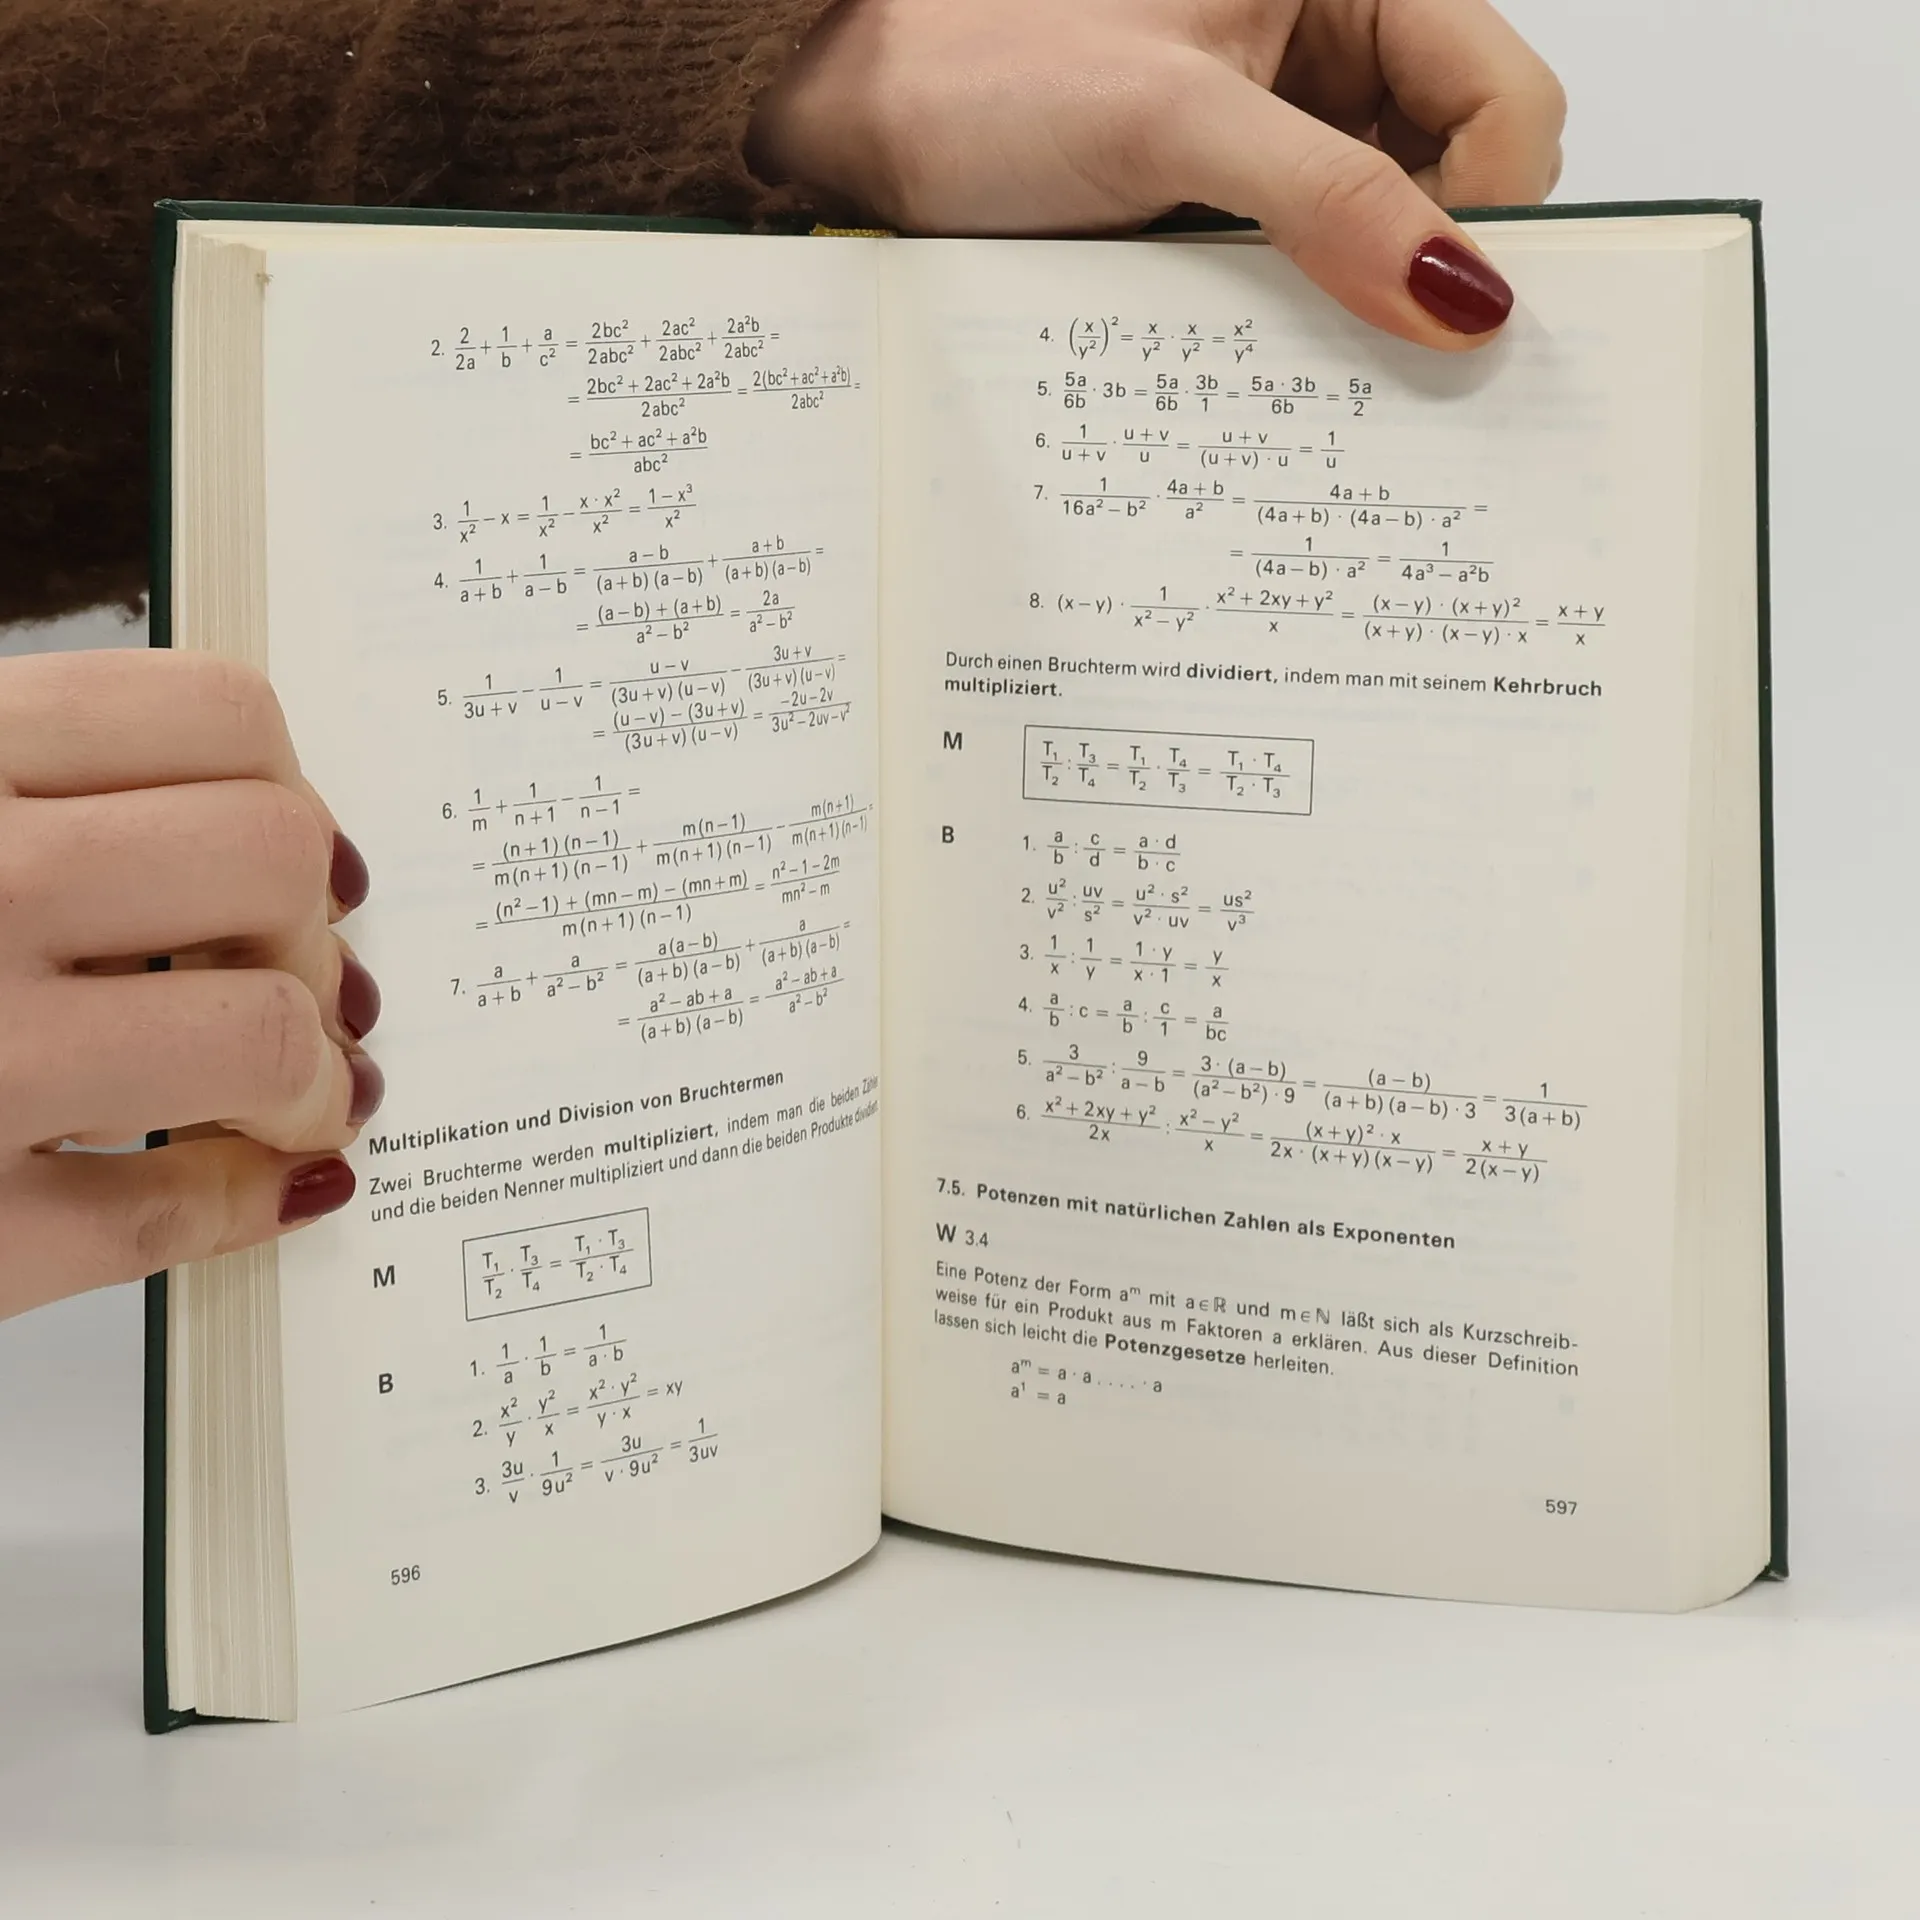 2. 2/2a + 1/b + a/c² = 2bc²/2abc² + 2ac²/2abc² + 2a²b/2abc² =
= (2bc² + 2ac² + 2a²b)/2abc² = 2(bc² + ac² + a²b)/2abc² =
= (bc² + ac² + a²b)/abc²
3. 1/x² − x = 1/x² − (x · x²)/x² = (1 − x³)/x²
4. 1/(a+b) + 1/(a−b) = (a−b)/((a+b)(a−b)) + (a+b)/((a+b)(a−b)) =
= ((a−b) + (a+b))/(a² − b²) = 2a/(a² − b²)
5. 1/(3u+v) − 1/(u−v) = (u−v)/((3u+v)(u−v)) − (3u+v)/((3u+v)(u−v)) =
= ((u−v) − (3u+v))/((3u+v)(u−v)) = (−2u−2v)/(3u²−2uv−v²)
6. 1/m + 1/(n+1) − 1/(n−1) =
= ((n+1)(n−1))/(m(n+1)(n−1)) + (m(n−1))/(m(n+1)(n−1)) − (m(n+1))/(m(n+1)(n−1)) =
= ((n²−1) + (mn−m) − (mn+m))/(m(n+1)(n−1)) = (n²−1−2m)/(mn²−m)
7. a/(a+b) + a/(a²−b²) = (a(a−b))/((a+b)(a−b)) + a/((a+b)(a−b)) =
= (a²−ab+a)/((a+b)(a−b)) = (a²−ab+a)/(a²−b²)
Multiplikation und Division von Bruchtermen
Zwei Bruchterme werden multipliziert, indem man die beiden Zähler
und die beiden Nenner multipliziert und dann die beiden Produkte dividiert.
M
T₁/T₂ · T₃/T₄ = (T₁ · T₃)/(T₂ · T₄)
B
1. 1/a · 1/b = 1/(a · b)
2. x²/y · y²/x = (x² · y²)/(y · x) = xy
3. 3u/v · 1/9u² = 3u/(v · 9u²) = 1/3uv
596
4. (x/y²)² = x/y² · x/y² = x²/y⁴
5. 5a/6b · 3b = 5a/6b · 3b/1 = (5a · 3b)/6b = 5a/2
6. 1/(u+v) · (u+v)/u = (u+v)/((u+v) · u) = 1/u
7. 1/(16a² − b²) · (4a+b)/a² = (4a+b)/((4a+b) · (4a−b) · a²) =
= 1/((4a−b) · a²) = 1/(4a³ − a²b)
8. (x−y) · 1/(x² − y²) · (x² + 2xy + y²)/x = ((x−y) · (x+y)²)/((x+y) · (x−y) · x) = (x+y)/x
Durch einen Bruchterm wird dividiert, indem man mit seinem Kehrbruch
multipliziert.
M
T₁/T₂ : T₃/T₄ = T₁/T₂ · T₄/T₃ = (T₁ · T₄)/(T₂ · T₃)
B
1. a/b : c/d = (a · d)/(b · c)
2. u²/v² : uv/s² = (u² · s²)/(v² · uv) = us²/v³
3. 1/x : 1/y = (1 · y)/(x · 1) = y/x
4. a/b : c = a/b : c/1 = a/bc
5. 3/(a² − b²) : 9/(a−b) = (3 · (a−b))/((a² − b²) · 9) = (a−b)/((a+b)(a−b) · 3) = 1/(3(a+b))
6. (x² + 2xy + y²)/2x : (x² − y²)/x = ((x+y)² · x)/(2x · (x+y)(x−y)) = (x+y)/(2(x−y))
7.5. Potenzen mit natürlichen Zahlen als Exponenten
W 3.4
Eine Potenz der Form aᵐ mit a∈ℝ und m∈ℕ läßt sich als Kurzschreib-
weise für ein Produkt aus m Faktoren a erklären. Aus dieser Definition
lassen sich leicht die Potenzgesetze herleiten.
aᵐ = a · a . . . . · a
a¹ = a
597